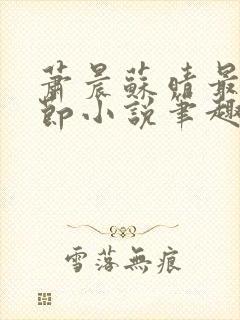 蕭晨蘇晴最
節小說筆趣
雪落無痕